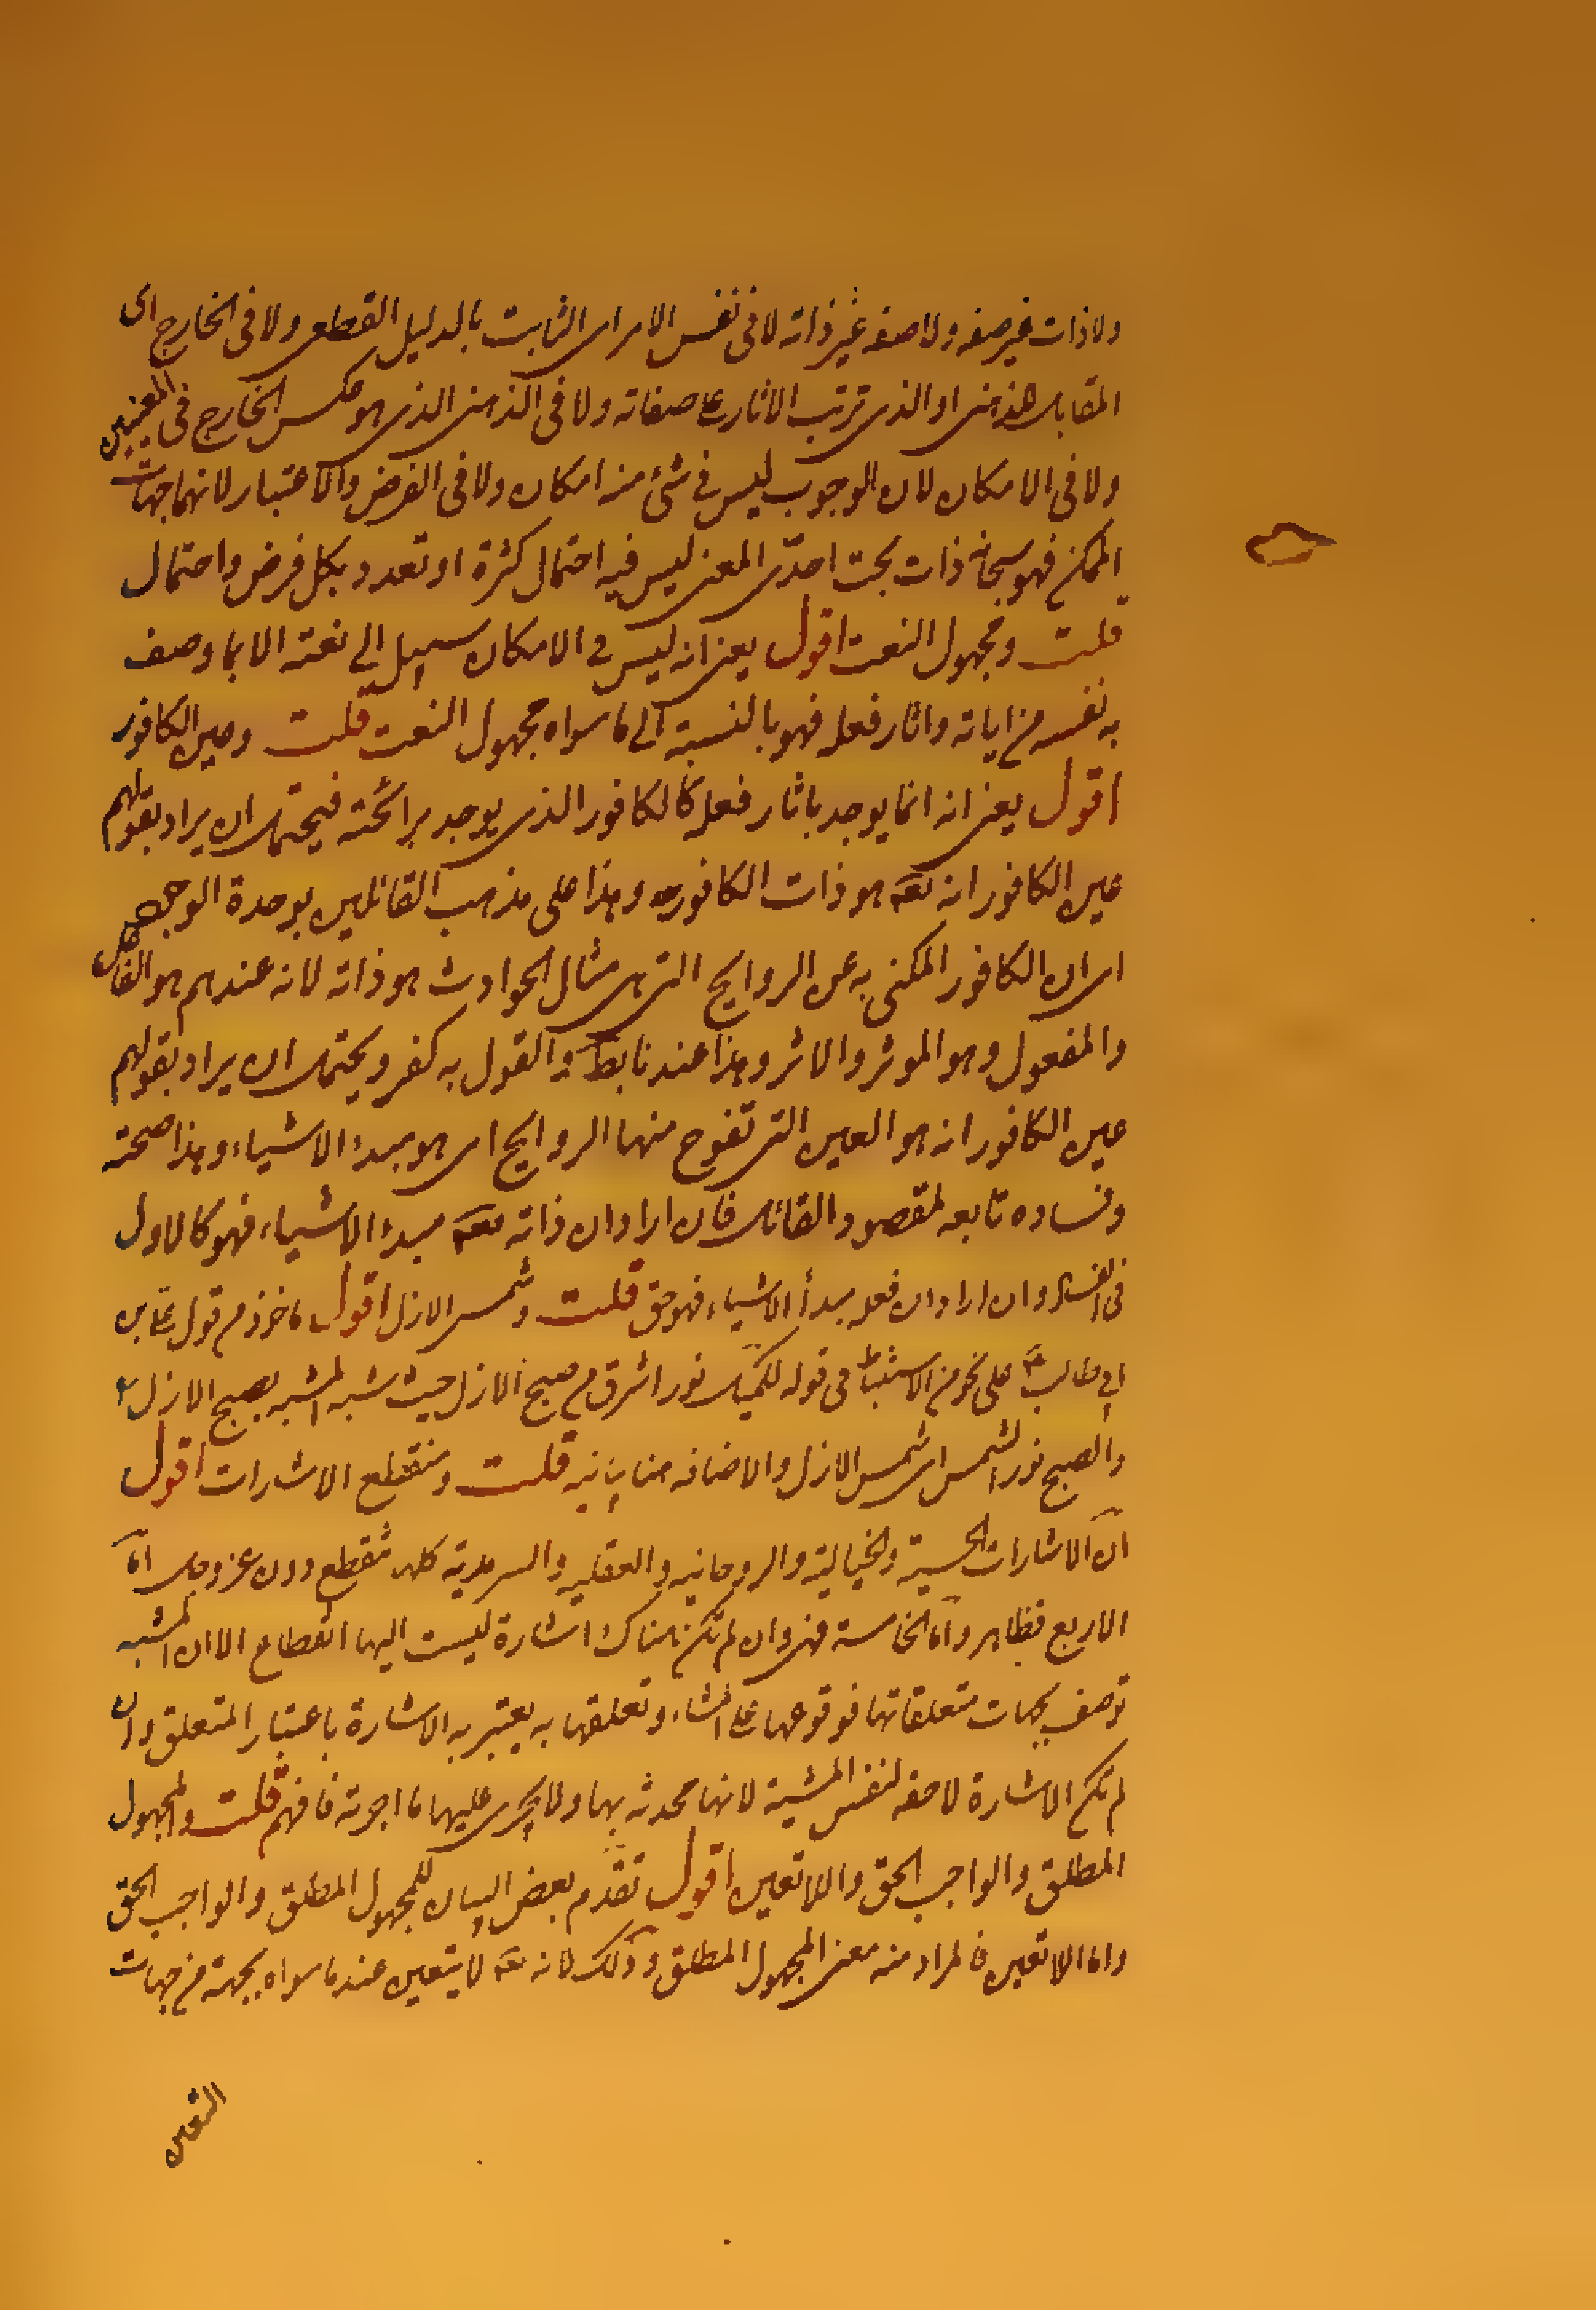 ولا ذات غير صفه ولا صفه غير ذاته لا فى نفس الامر اى الثابت بالدليل القطعى ولا فى الخارج اى
المقابل للذهنى او الذى ترتب الاثار على صفاته ولا فى الذهنى الذى هو عكس الخارج فى المعنيين
ولا فى الامكان لان الوجوب ليس فى شئ منه امكان ولا فى الفرض والاعتبار لانهما جهات
الممكن فهو سبحانه ذات بحت احدّى المعنى ليس فيه احتمال كثرة او تعدد بكل فرض واحتمال
قلت ومجهول النعت اقول يعنى انه ليس فى الامكان سبيل الى نعته الا بما وصف
به نفسه من اياته واثار فعله فهو بالنسبة الى ما سواه مجهول النعت قلت وعين الكافور
اقول يعنى انه انما يوجد باثار فعله كالكافور الذى يوجد برائحته فيحتمل ان يراد بقولهم
عين الكافور انه تعه هو ذات الكافور وهذا على مذهب القائلين بوحدة الوجود
اى ان الكافور المكنى به عن الروايح التى هى مثال الحوادث هو ذاته لانه عندهم هو الفاعل
والمفعول وهو الموثر والاثر وهذا عندنا بط والقول به كفر ويحتمل ان يراد بقولهم
عين الكافور انه هو العين التى تفوح منها الروايح اى هو مبدء الاشياء وهذا صحته
وفساده تابعه لمقصود القائل فان اراد ان ذاته تعه مبدء الاشياء فهو كالاول
فى الفساد وان اراد ان فعله مبدأ الاشياء فهو حق قلت وشمس الازل اقول ماخوذ من قول على بن
ابى طالب على نحو من الاستنباط فى قوله لكميل نور اشرق من صبح الازل حيث شبه المشبه بصبح الازل
والصبح نور الشمس اى شمس الازل والاضافه هنا بيانيه قلت ومنقطع الاشارات اقول
ان الاشارات الحسية والخيالية والروحانيه والعقليه والسرمدية كلها تنقطع دون عز وجل اما
الاربع فظاهر واما الخامسة فهى وان لم تكن هناك اشارة ليست اليها انقطاع الا ان المشيه
توصف بجهات متعلقاتها فوقوعها على المشاء وتعلقها به يعتبر به الاشارة باعتبار المتعلق وان
لم تكن الاشارة لاحقه لنفس المشية لانها محدثه بها ولا يجرى عليها ما اجرته فافهم قلت والمجهول
المطلق والواجب الحق واللاتعين اقول تقدّم بعض البيان للمجهول المطلق والواجب الحق
واما اللاتعين فالمراد منه معنى المجهول المطلق وذلك لانه تعه لا يتعين عند ما سواه بجهة من جهات
التعين